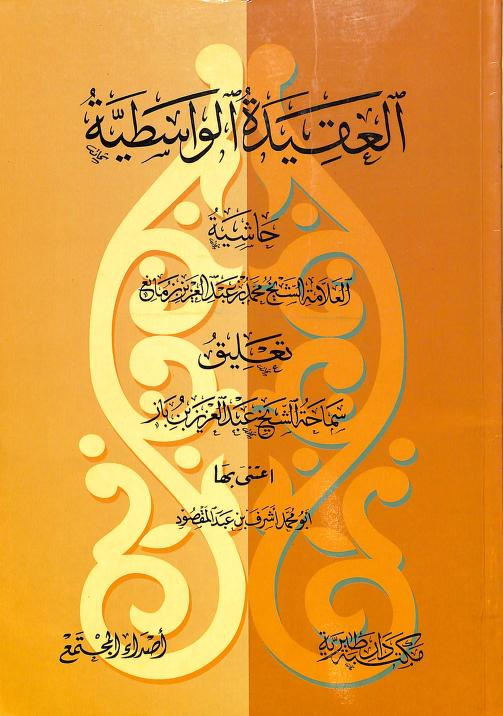 العقيدة الواسطية
حاشية
العلامة الشيخ محمد بن عبد العزيز بن مانع
تعليق
سماحة الشيخ عبد العزيز بن باز
اعتنى بها
أبو محمد أشرف بن عبد المقصود
مكتبة دار طبرية
أضواء المجتمع